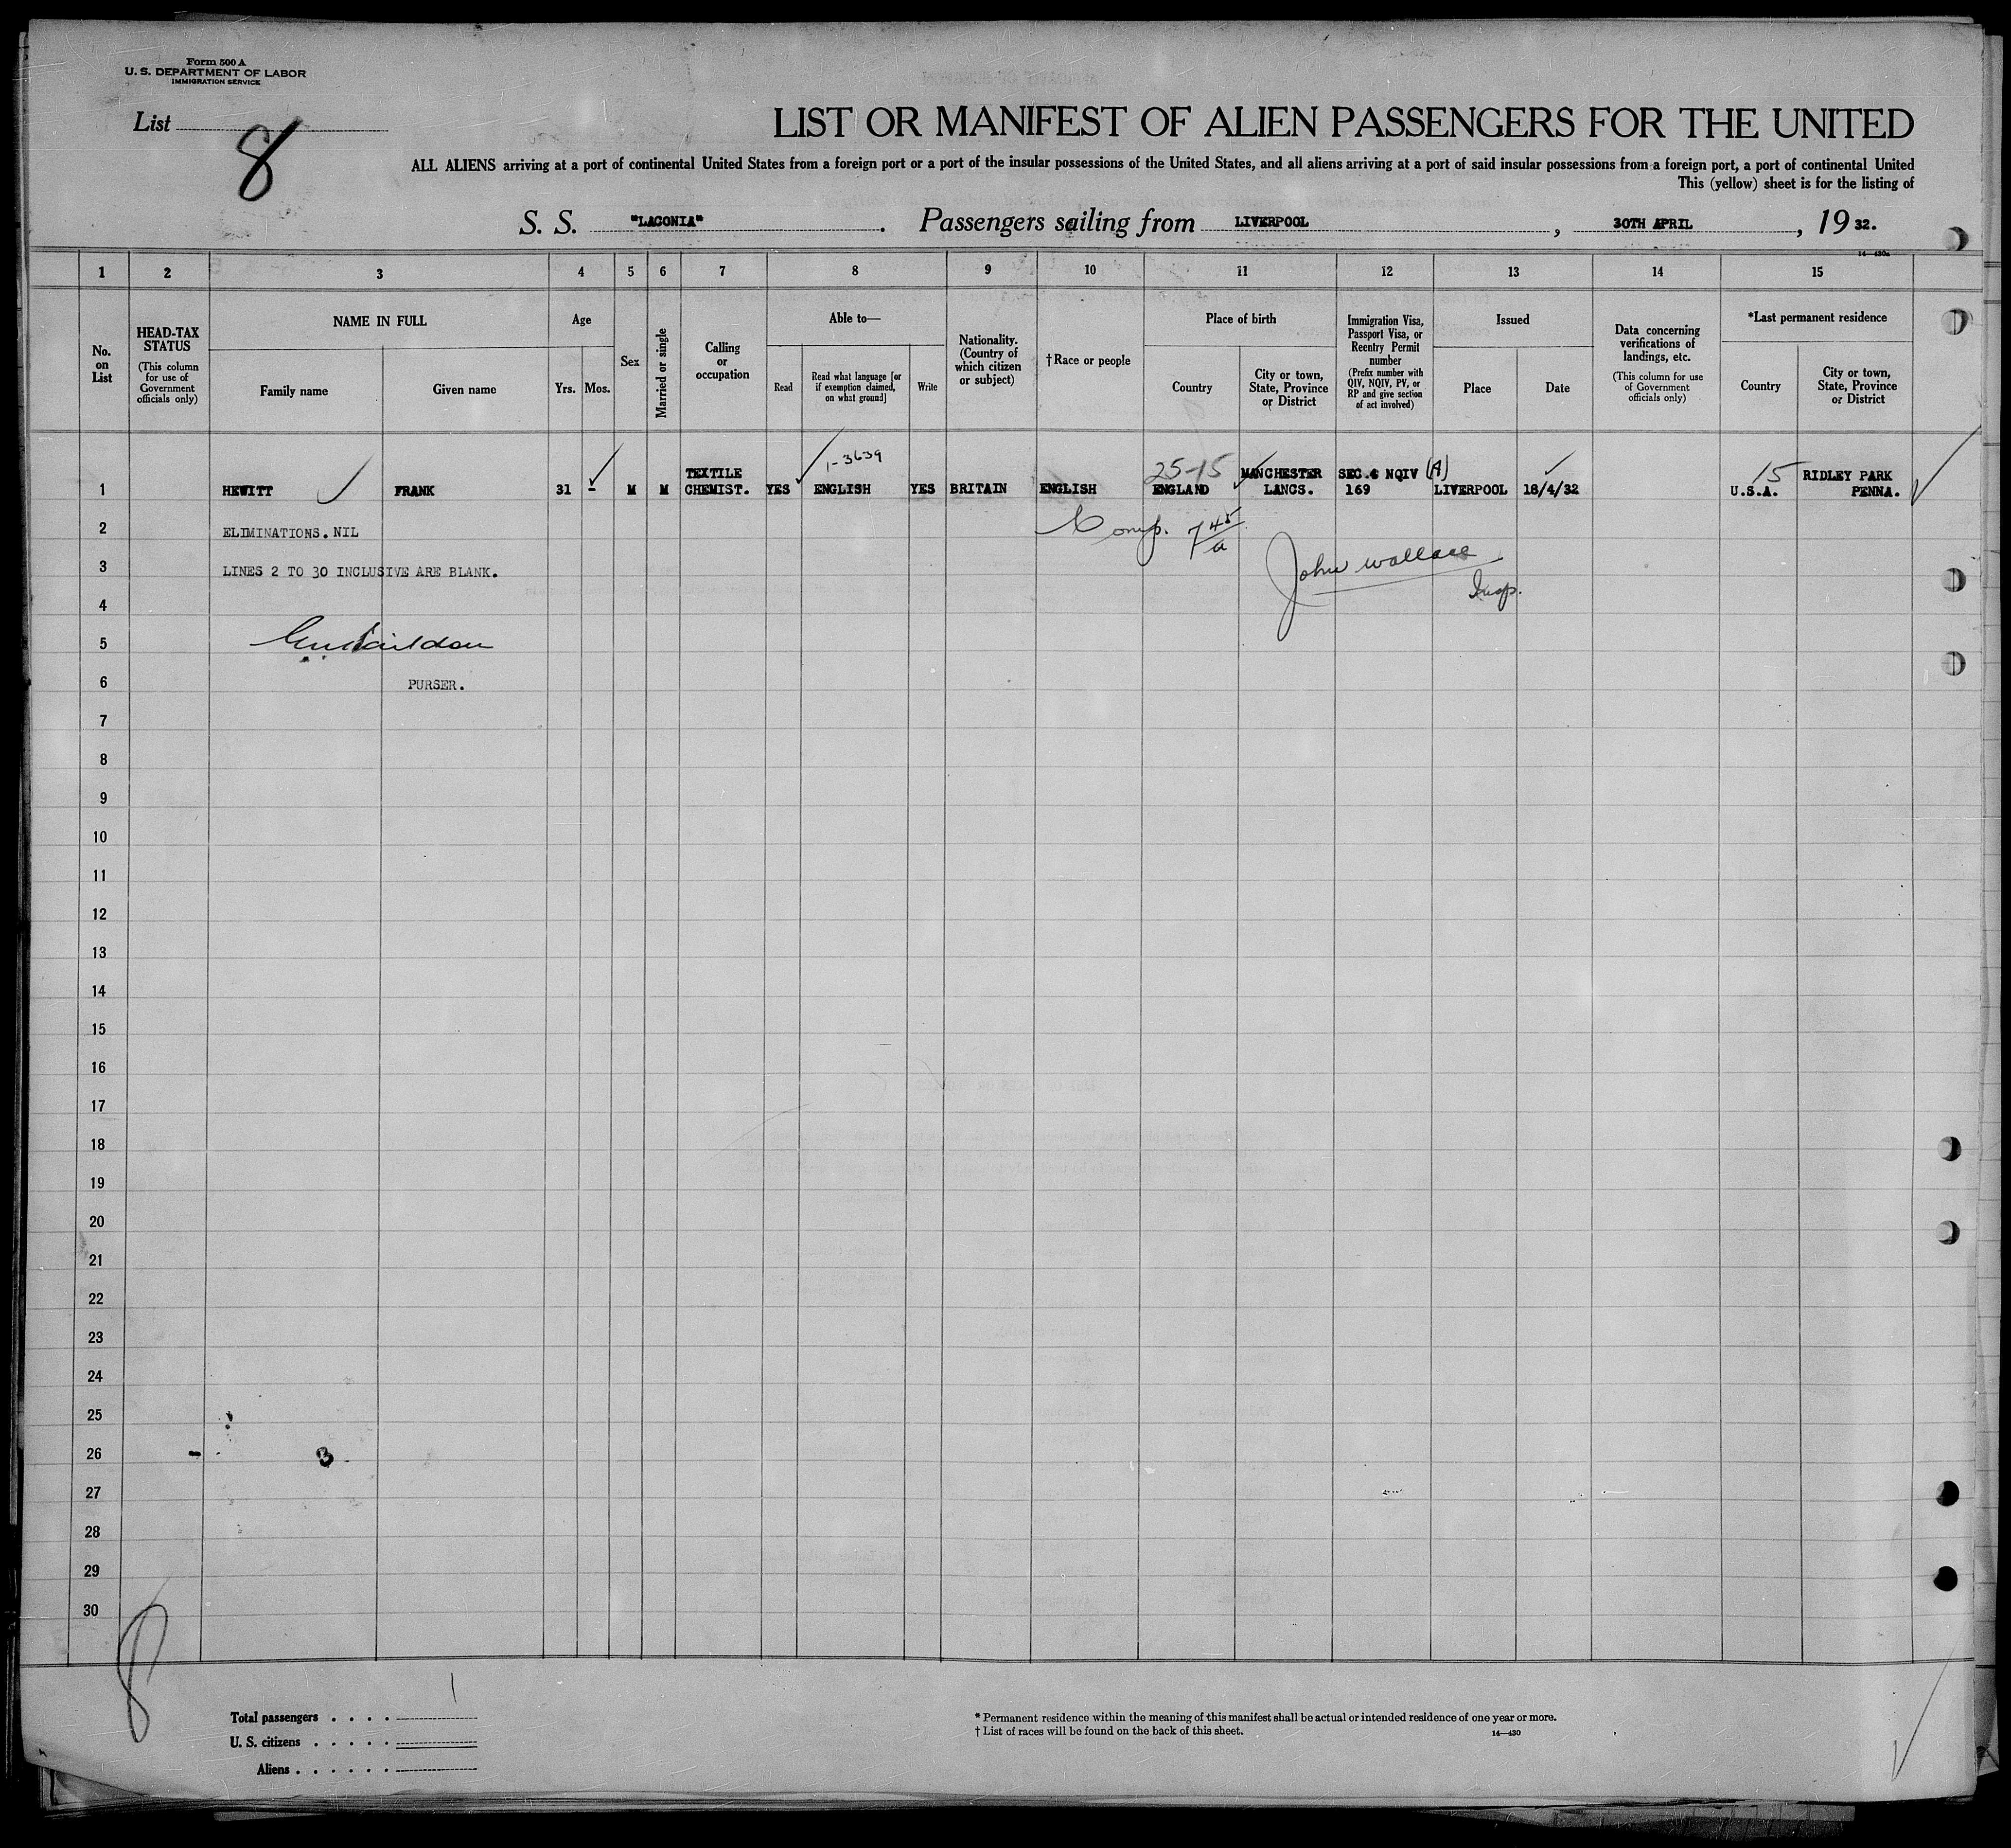 Form 500 A
U. S. DEPARTMENT OF LABOR
IMMIGRATION SERVICE
List 8
LIST OR MANIFEST OF ALIEN PASSENGERS FOR THE UNITED
ALL ALIENS arriving at a port of continental United States from a foreign port or a port of the insular possessions of the United States, and all aliens arriving at a port of said insular possessions from a foreign port, a port of continental United
This (yellow) sheet is for the listing of
S. S. "LACONIA". Passengers sailing from LIVERPOOL, 30TH APRIL, 19 32.
14—430a
1 2 3 4 5 6 7 8 9 10 11 12 13 14 15
No. on List
HEAD-TAX STATUS
(This column for use of Government officials only)
NAME IN FULL
Family name
Given name
Age
Yrs.
Mos.
Sex
Married or single
Calling or occupation
Able to—
Read
Read what language [or if exemption claimed, on what ground]
Write
Nationality. (Country of which citizen or subject)
†Race or people
Place of birth
Country
City or town, State, Province or District
Immigration Visa, Passport Visa, or Reentry Permit number
(Prefix number with QIV, NQIV, PV, or RP and give section of act involved)
Issued
Place
Date
Data concerning verifications of landings, etc.
(This column for use of Government officials only)
*Last permanent residence
Country
City or town, State, Province or District
1-3639
25-15
15
TEXTILE MANCHESTER SEC.4 NQIV (A) RIDLEY PARK
1 HEWITT FRANK 31 - M M CHEMIST. YES ENGLISH YES BRITAIN ENGLISH ENGLAND LANCS. 169 LIVERPOOL 18/4/32 U.S.A. PENNA.
2 ELIMINATIONS. NIL Comp. 7 45/a
John Wallace
3 LINES 2 TO 30 INCLUSIVE ARE BLANK.
Insp.
4
5
6 PURSER.
7
8
9
10
11
12
13
14
15
16
17
18
19
20
21
22
23
24
25
26
27
28
29
30
8
1
Total passengers . . . .
U. S. citizens . . . . .
Aliens . . . . . .
* Permanent residence within the meaning of this manifest shall be actual or intended residence of one year or more.
† List of races will be found on the back of this sheet.
14—430